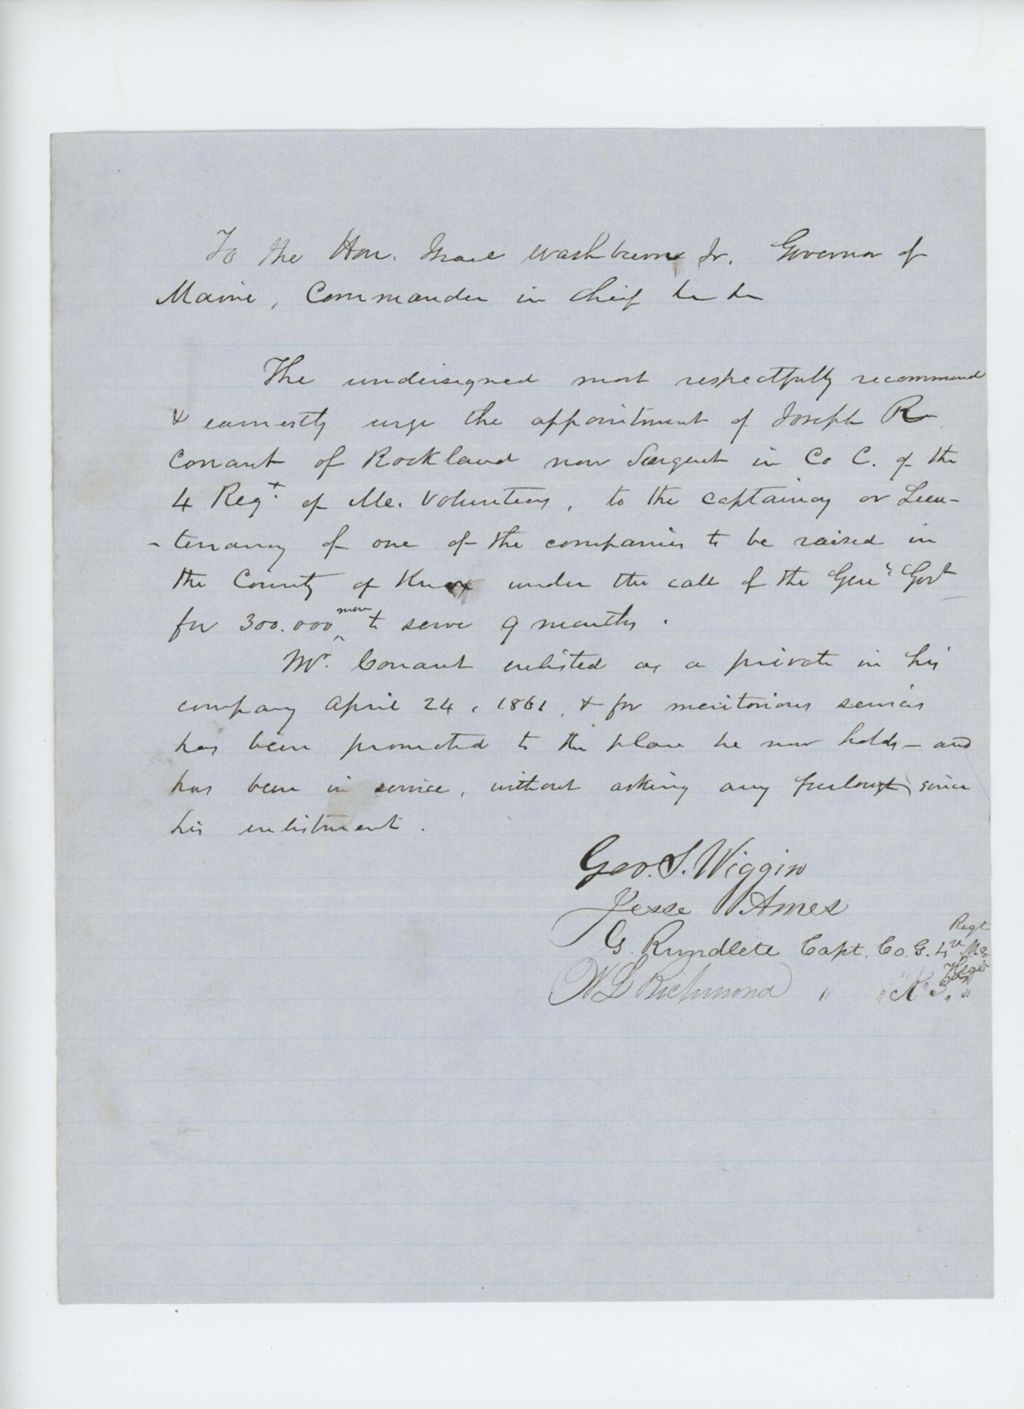 To the Hon. Israel Washburn Jr. Governor of
Maine, Commander in Chief &c &c
The undersigned most respectfully recommend
& earnestly urge the appointment of Joseph R
Conant of Rockland now Sargent in Co C. of the
4 Regt. of Me. Volunteers, to the captaincy or Lieu-
-tenancy of one of the companies to be raised in
the County of Knox under the call of the Genl Govt
for 300.000 men to serve 9 months.
Mr. Conant enlisted as a private in his
company April 24, 1861, & for meritorious services
has been promoted to the place he now holds - and
has been in service, without asking any furlough since
his enlistment.
Geo. S. Wiggin
Jesse Ames
G. Rundlete Capt. Co. G. 4th Me Regt
W L Richmond " "